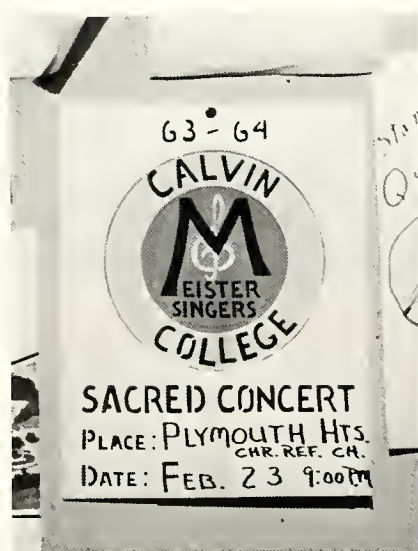 63-64
CALVIN
MEISTER
SINGERS
COLLEGE
SACRED CONCERT
PLACE: PLYMOUTH HTS.
CHR. REF. CH.
DATE: FEB. 23 9:00 PM